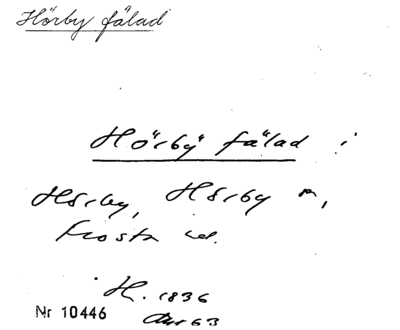 Hörby fälad
Hörby fälad i
Hörby, Hörby sn,
Frosta hd.
H. 1836
Nr 10446
63